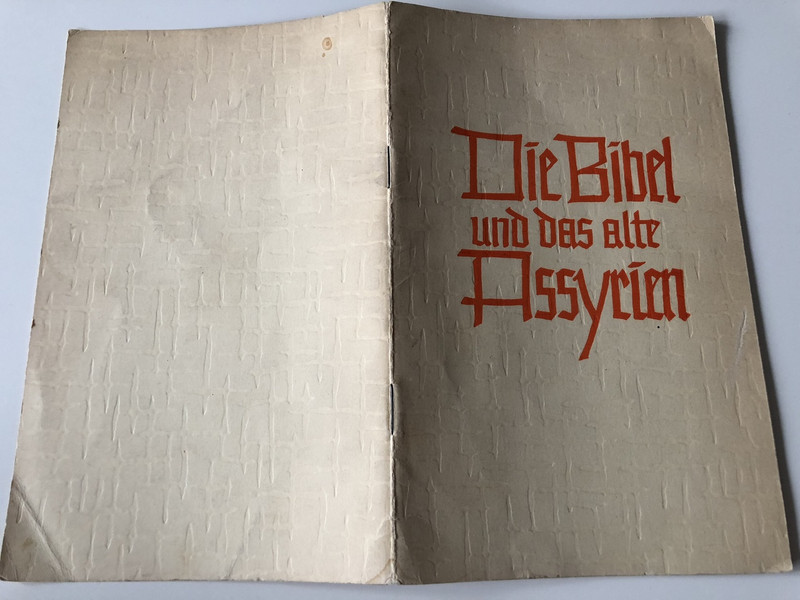 Die Bibel
und das alte
Assyrien